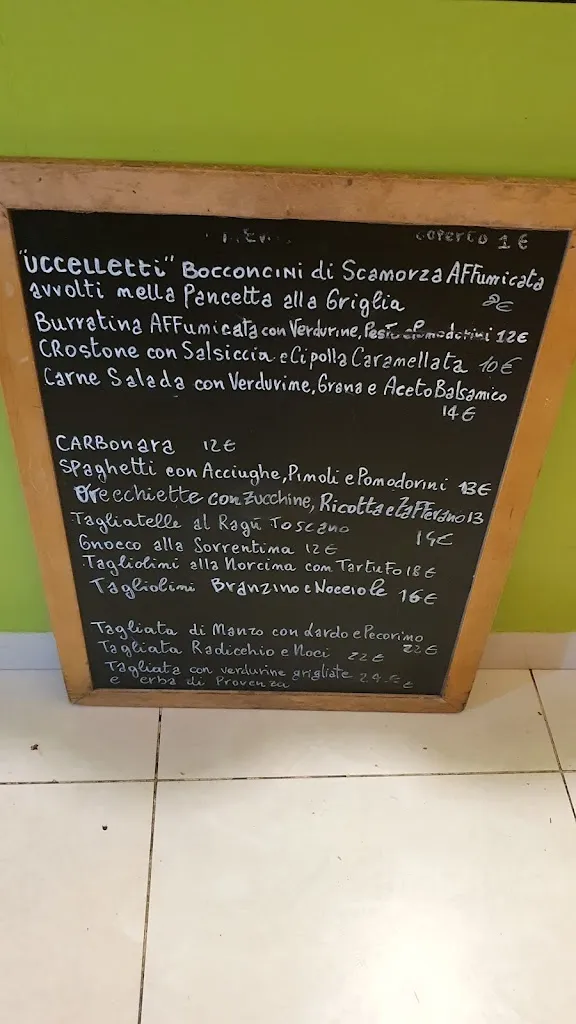 coperto 1 €
"UCCELLETTI" BOCCONCINI di SCAMORZA AFFUMICATA
AVVOLTI mella PANCETTA alla GRIGLIA
8€
BURRATINA AFFUMICATA con VERDURINE, Pesto e Pomodorini 12€
CROSTONE con SALSICCIA e CIPOLLA CARAMELLATA 10€
CARNE SALADA con VERDURINE, GRANA e ACETO BALSAMICO
14€
CARBONARA 12€
SPAGHETTI con ACCIUGHE, Pimoli e Pomodorini 13€
Orecchiette con Zucchine, Ricotta e Zafferano 13
Tagliatelle al Ragù Toscano 14€
Gnocco alla Sorrentina 12€
Tagliolini alla Norcina com TARTUFO 18€
Tagliolimi Branzino e Nocciole 16€
Tagliata di Manzo con Lardo e Pecorimo
22€
Tagliata Radicchio e Noci 22€
Tagliata con verdurine grigliate 24 €
e erba di Provenza